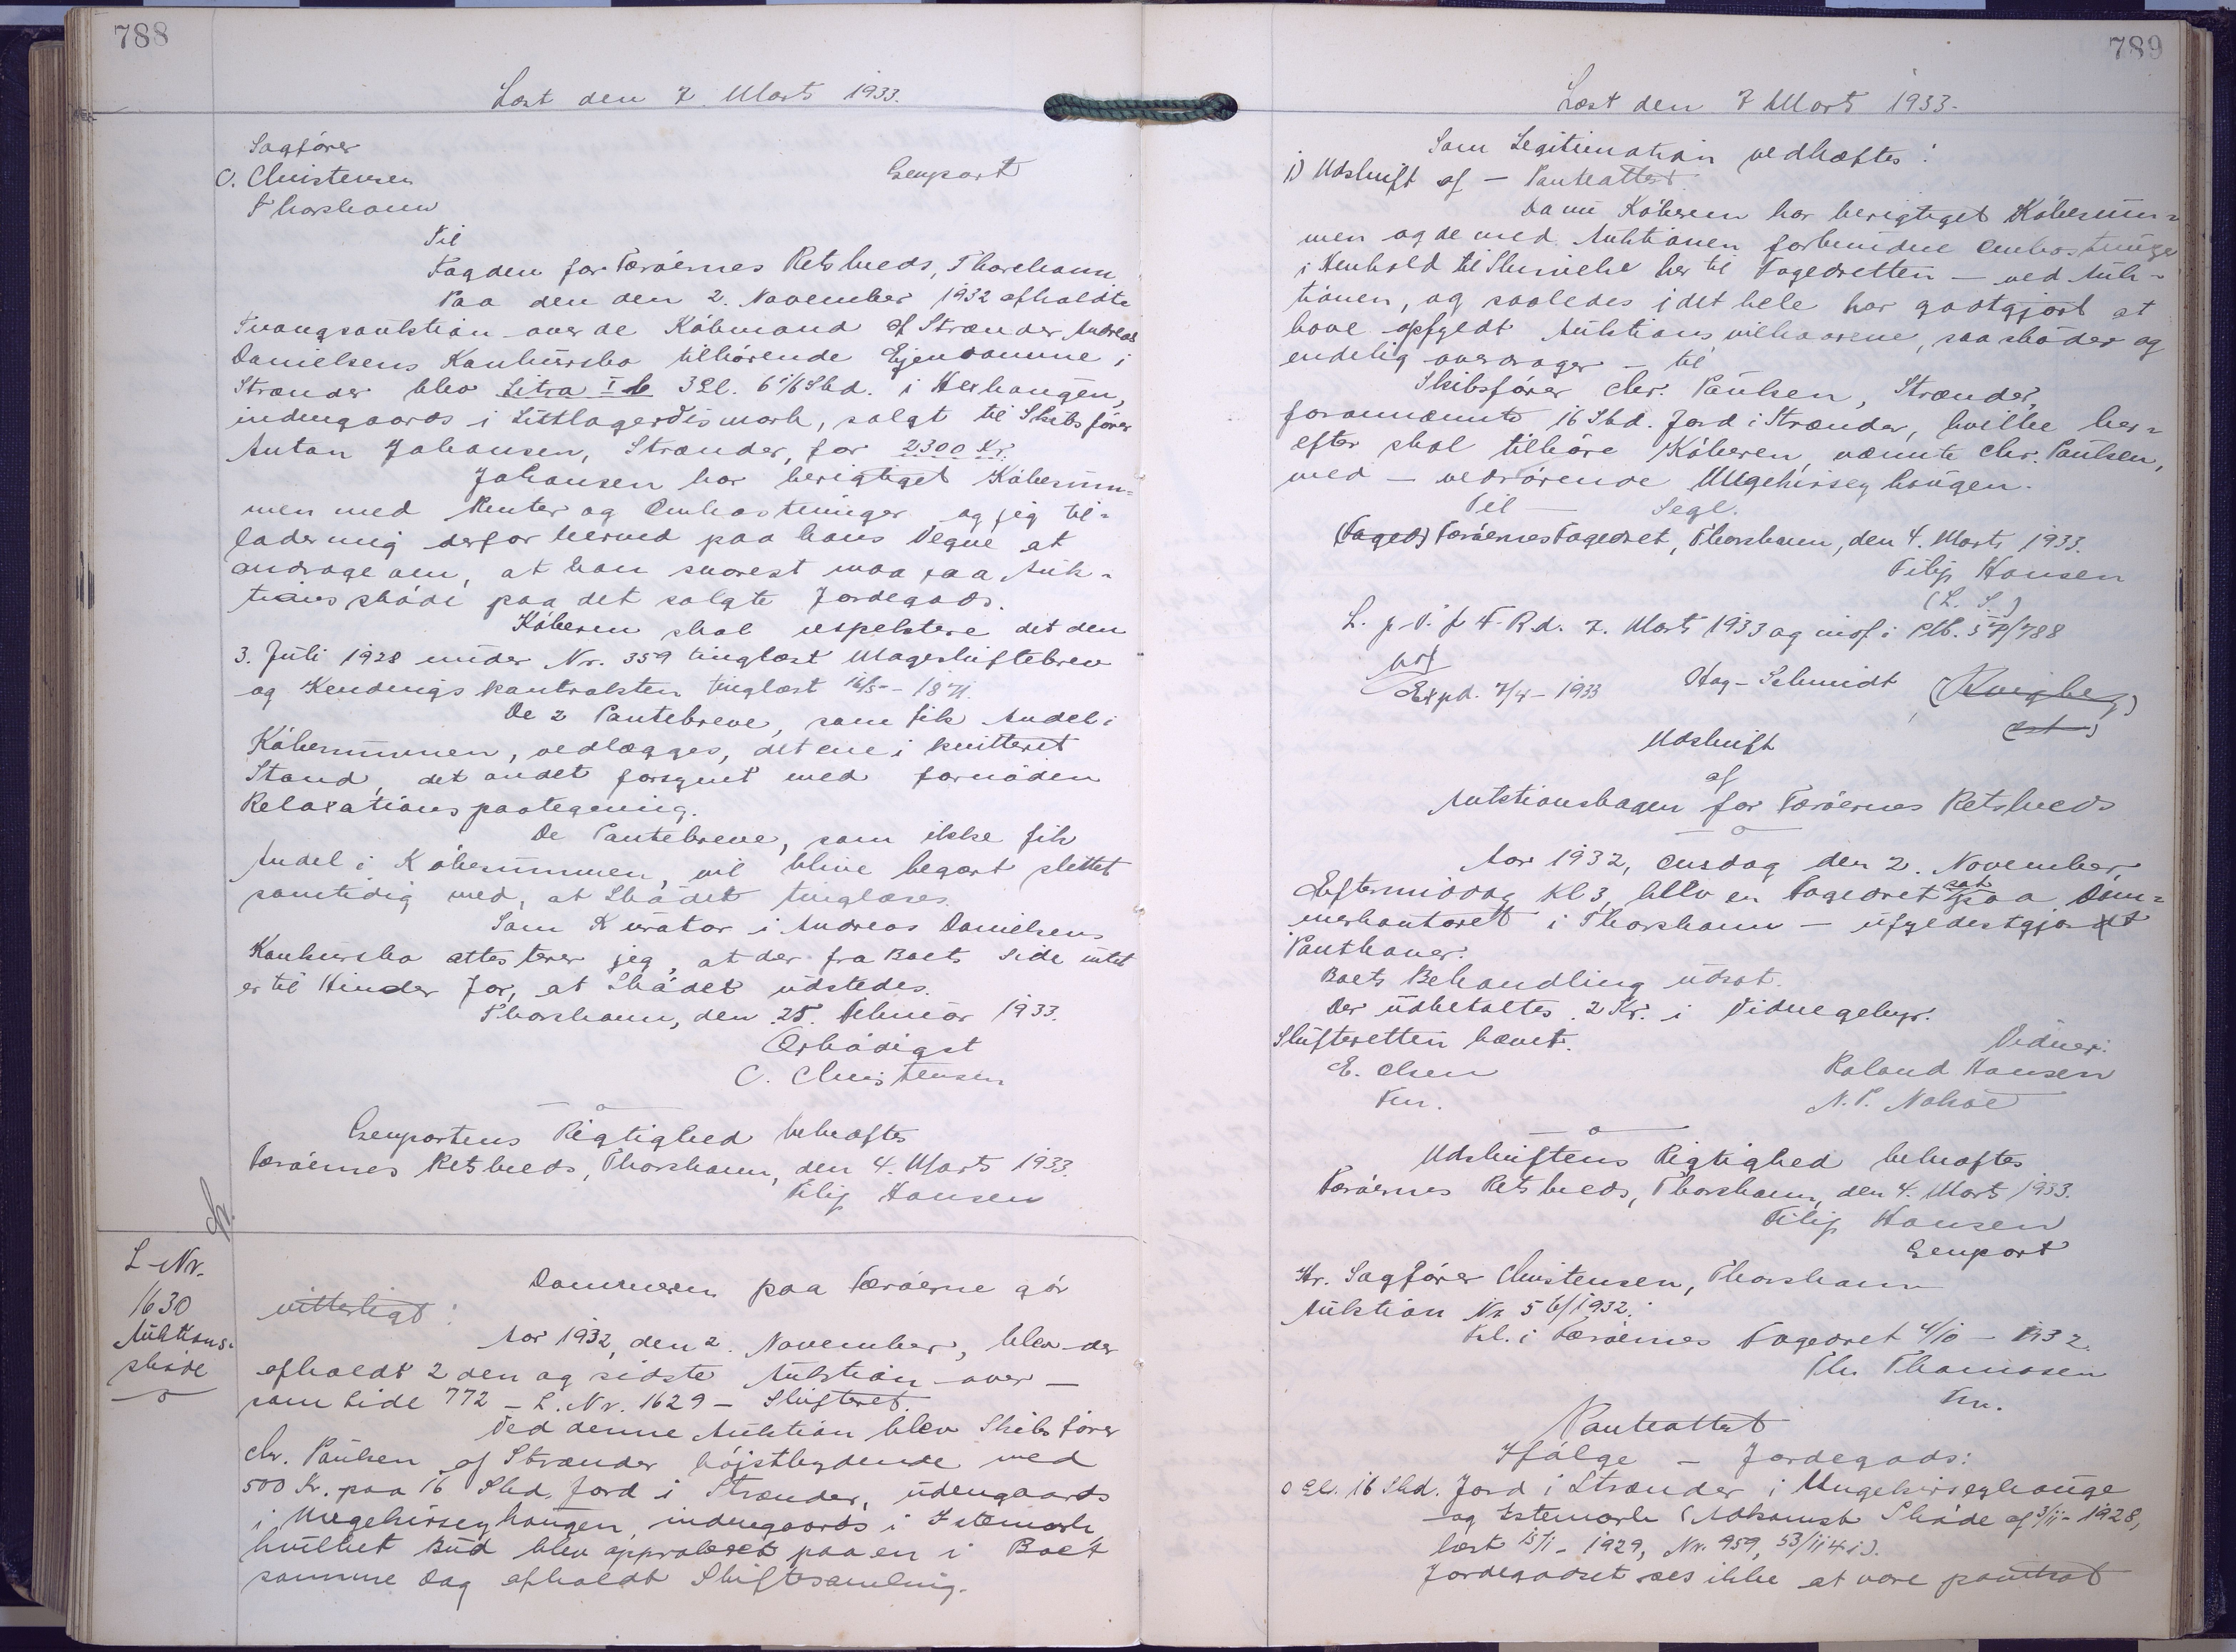 788
Læst den 7. Marts 1933.
Sagfører
C. Christensen
Thorshavn
Genpart
Til
Fogden for Færøernes Retskreds, Thorshavn
Paa den den 2. November 1932 afholdte
Tvangsauktion over de Købmand af Strænder Andreas
Danielsens Konkursbo tilhørende Ejendomme i
Strænder blev Litra I b 3 Gl. 6 1/6 Skd. i Herhaugen,
indengaards i Littlagerdismark, solgt til Skibsfører
Anton Johansen, Strænder, for 2300 Kr.
Johansen har berigtiget Købesum-
men med Renter og Omkostninger og jeg til-
lader mig derfor herved paa hans Vegne at
andrage om, at han snarest maa faa Auk-
tionsskøde paa det solgte Jordegods.
Køberen skal respektere det den
3. Juli 1928 under Nr. 359 tinglæst Mageskiftebrev
og Kendings kontrakten tinglæst 16/5 - 1871.
De 2 Pantebreve, som fik Andel i
Købesummen, vedlægges, det ene i kvitteret
Stand, det andet forsynet med fornøden
Relaxationspaategning.
De Pantebreve, som ikke fik
Andel i Købesummen, vil blive begært slettet
samtidig med, at Skødet tinglæses.
Som Kurator i Andreas Danielsens
Konkursbo attesterer jeg, at der fra Boets Side intet
er til Hinder for, at Skødet udstedes.
Thorshavn, den 25. Februar 1933.
Ærbødigst
C. Christensen
Genpartens Rigtighed bekræftes
Færøernes Retskreds, Thorshavn, den 4. Marts 1933.
Filip Hansen
L-Nr.
1630
Auktions-
skøde
Dommeren paa Færøerne gør
vitterligt:
Aar 1932, den 2. November, blev der
afholdt 2den og sidste Auktion over —
som Side 772 - L. Nr. 1629 - Skifteret.
Ved denne Auktion blev Skibsfører
Chr. Paulsen af Strænder højstbydende med
500 Kr. paa 16 Skd. Jord i Strænder, udengaards
i Mugekirseyhaugen, indengaards i Istemark,
hvilket Bud blev approberet paa en i Boet
samme Dag afholdt Skiftesamling.
789
Læst den 7 Marts 1933.
Som Legitimation vedhæftes:
1) Udskrift af — Panteattest
Da nu Køberen har berigtiget Købesum-
men og de med Auktionen forbundne Omkostninger
i Henhold til Skrivelse her til Fogedretten — ved Auk-
tionen, og saaledes i det hele har godtgjort at
have opfyldt Auktionsvilkaarene, saa skøder og
endelig overdrager — til
Skibsfører Chr. Paulsen, Strænder,
forannævnte 16 Skd. Jord i Strænder, hvilke her-
efter skal tilhøre Køberen, nævnte Chr. Paulsen,
med — vedrørende Mugekirseyhaugen.
Til — Segl.
(Foged) Færøernes Fogedret, Thorshavn, den 4. Marts 1933.
Filip Hansen
(L. S.)
L. p. V. f F. R. d. 7. Marts 1933 og indf i Ptb. 57/788
Expd. 7/4 - 1933
Hag-Schmidt
Udskrift
af
Auktionsbogen for Færøernes Retskreds
Aar 1932, Onsdag den 2. November,
Eftermiddag Kl 3, blev en Fogedret sat paa Dom-
merkontoret i Thorshavn — ufyldestgjort
Panthaver.
Boets Behandling udsat.
Der udbetaltes 2 Kr. i Vidnegebyr.
Skifteretten hævet.
Vidner:
E. Olsen
Fm.
Roland Hansen
N. P. Nolsøe
Udskriftens Rigtighed bekræftes
Færøernes Retskreds, Thorshavn, den 4. Marts 1933.
Filip Hansen
Genpart
Hr. Sagfører Christensen, Thorshavn
Auktion Nr 56/1932.
Frl. i Færøernes Fogedret 4/10 - 1932.
Chr Thomssen
Fm.
Panteattest
Ifølge — Jordegods:
0 Gl. 16 Skd. Jord i Strænder i Mugekirseyhauge
og Istemark (Adkomst Skøde af 3/11 - 1928,
læst 15/1 - 1929, Nr. 959, 53/1141).
Jordegodset ses ikke at være pantsat